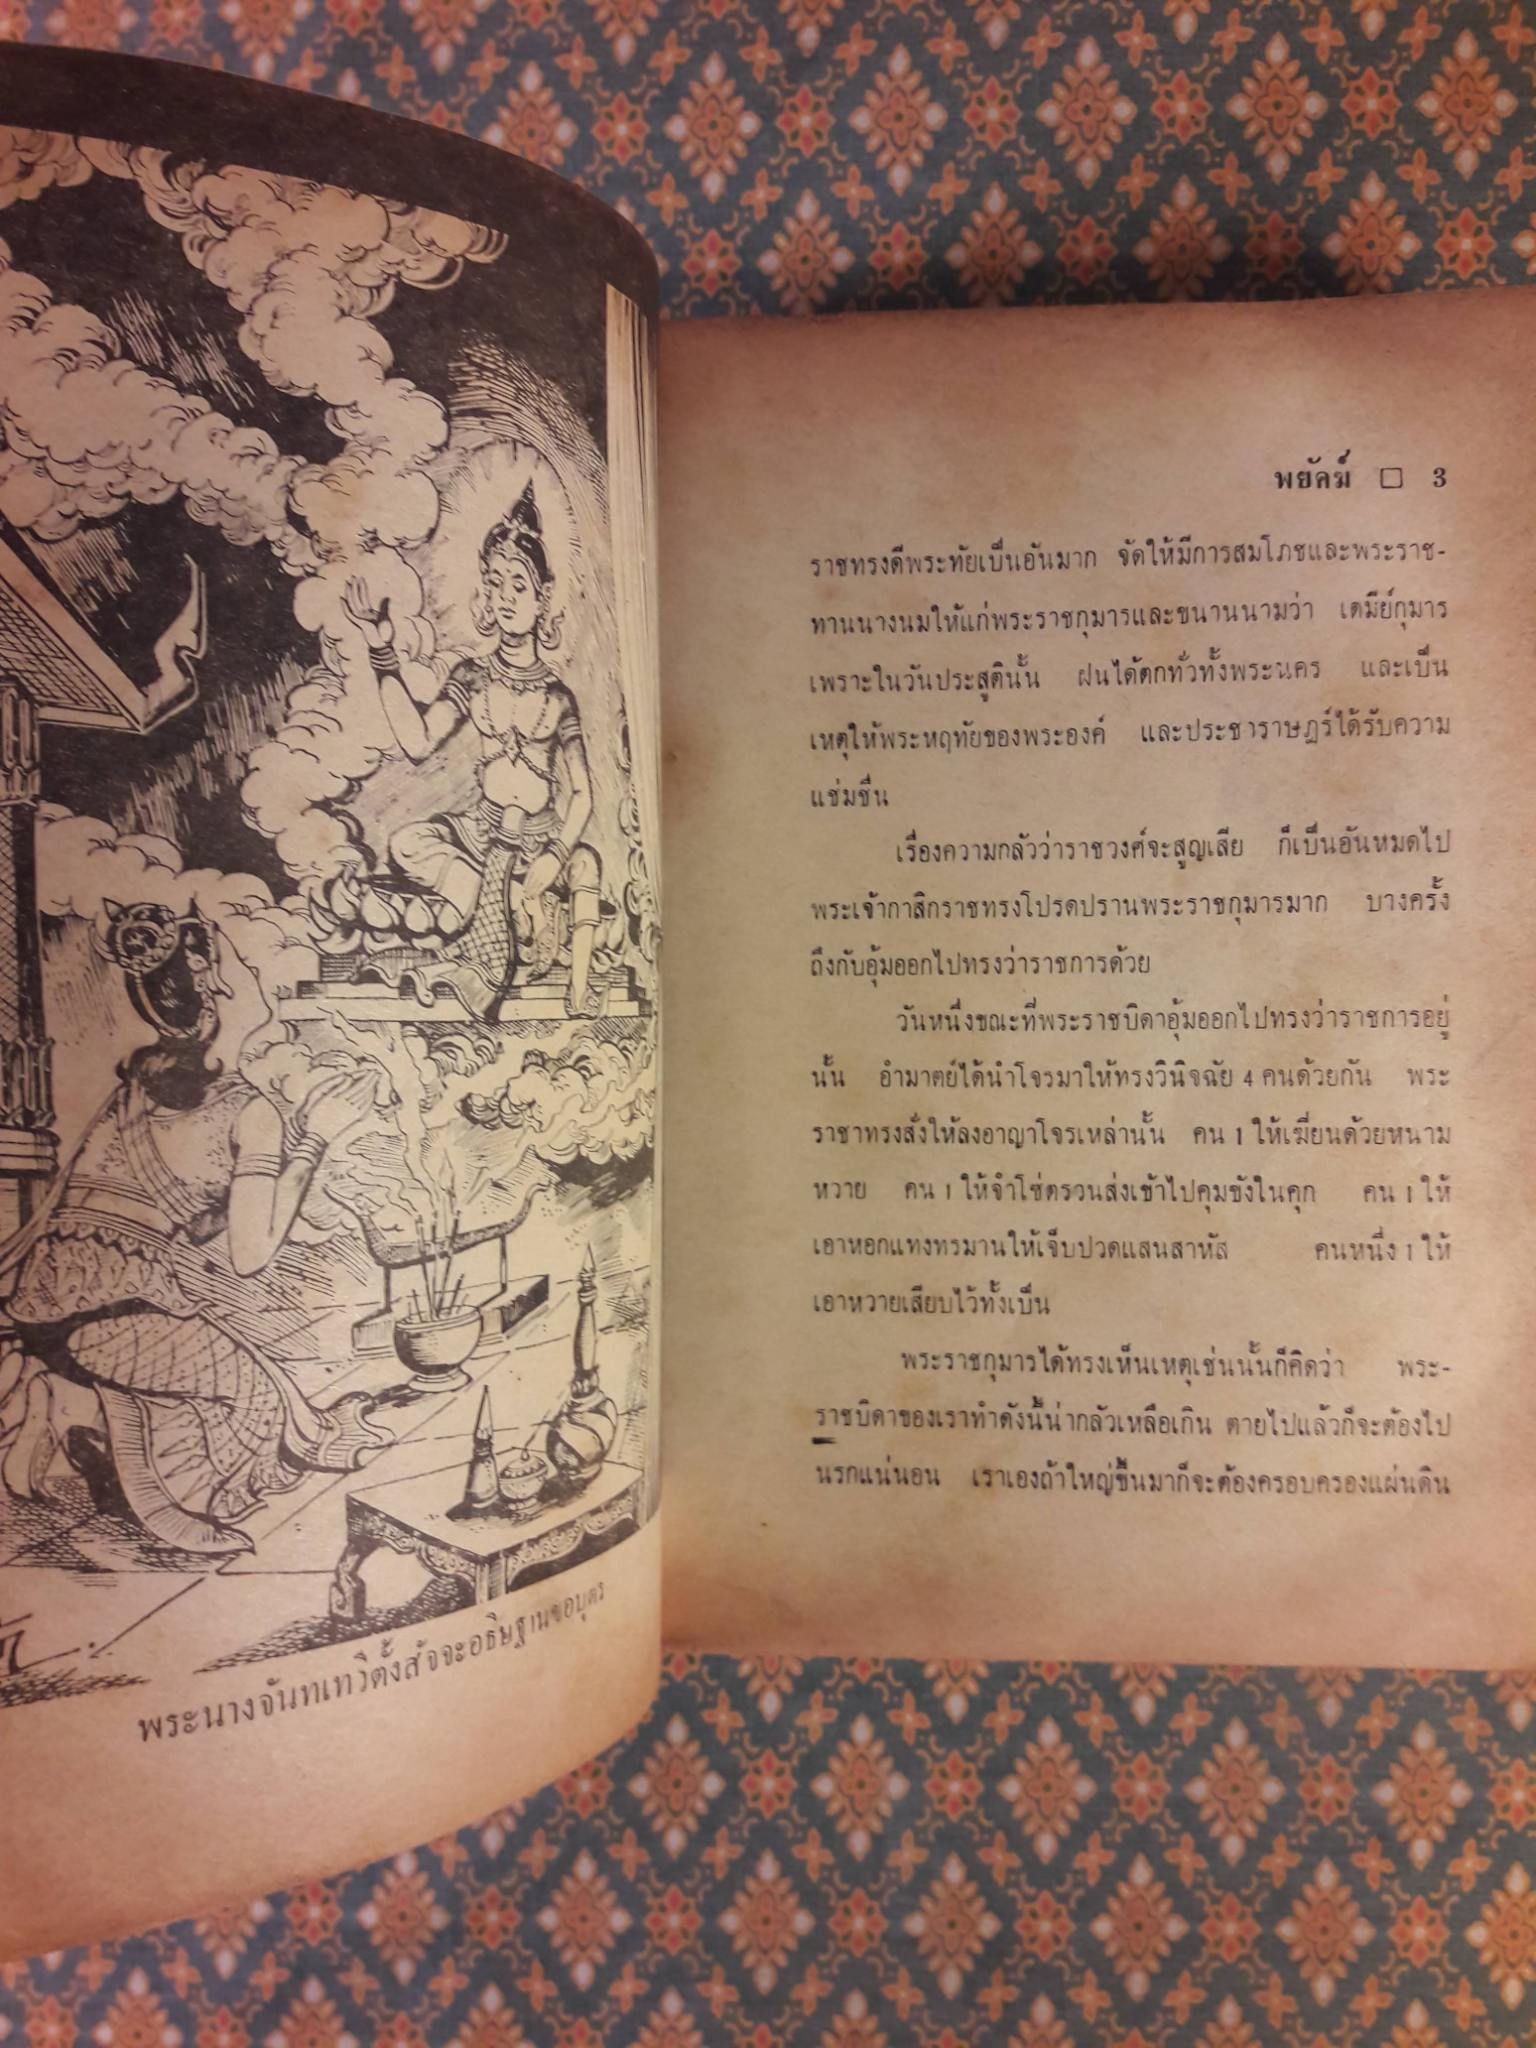 พระนางจันทเทวีตั้งสัจจะอธิษฐานขอบุตร
พยัคฆ์ □ 3
ราชทรงดีพระทัยเป็นอันมาก จัดให้มีการสมโภชและพระราช-
ทานนางนมให้แก่พระราชกุมารและขนานนามว่า เตมีย์กุมาร
เพราะในวันประสูตินั้น ฝนได้ตกทั่วทั้งพระนคร และเป็น
เหตุให้พระหฤทัยของพระองค์ และประชาราษฎร์ได้รับความ
แช่มชื่น
เรื่องความกลัวว่าราชวงศ์จะสูญเสีย ก็เป็นอันหมดไป
พระเจ้ากาสิกราชทรงโปรดปรานพระราชกุมารมาก บางครั้ง
ถึงกับอุ้มออกไปทรงว่าราชการด้วย
วันหนึ่งขณะที่พระราชบิดาอุ้มออกไปทรงว่าราชการอยู่
นั้น อำมาตย์ได้นำโจรมาให้ทรงวินิจฉัย 4 คนด้วยกัน พระ
ราชาทรงสั่งให้ลงอาญาโจรเหล่านั้น คน 1 ให้เฆี่ยนด้วยหนาม
หวาย คน 1 ให้จำโซ่ตรวนส่งเข้าไปคุมขังในคุก คน 1 ให้
เอาหอกแทงทรมานให้เจ็บปวดแสนสาหัส คนหนึ่ง 1 ให้
เอาหวายเสียบไว้ทั้งเป็น
พระราชกุมารได้ทรงเห็นเหตุเช่นนั้นก็คิดว่า พระ-
ราชบิดาของเราทำดังนี้น่ากลัวเหลือเกิน ตายไปแล้วก็จะต้องไป
นรกแน่นอน เราเองถ้าใหญ่ขึ้นมาก็จะต้องครอบครองแผ่นดิน